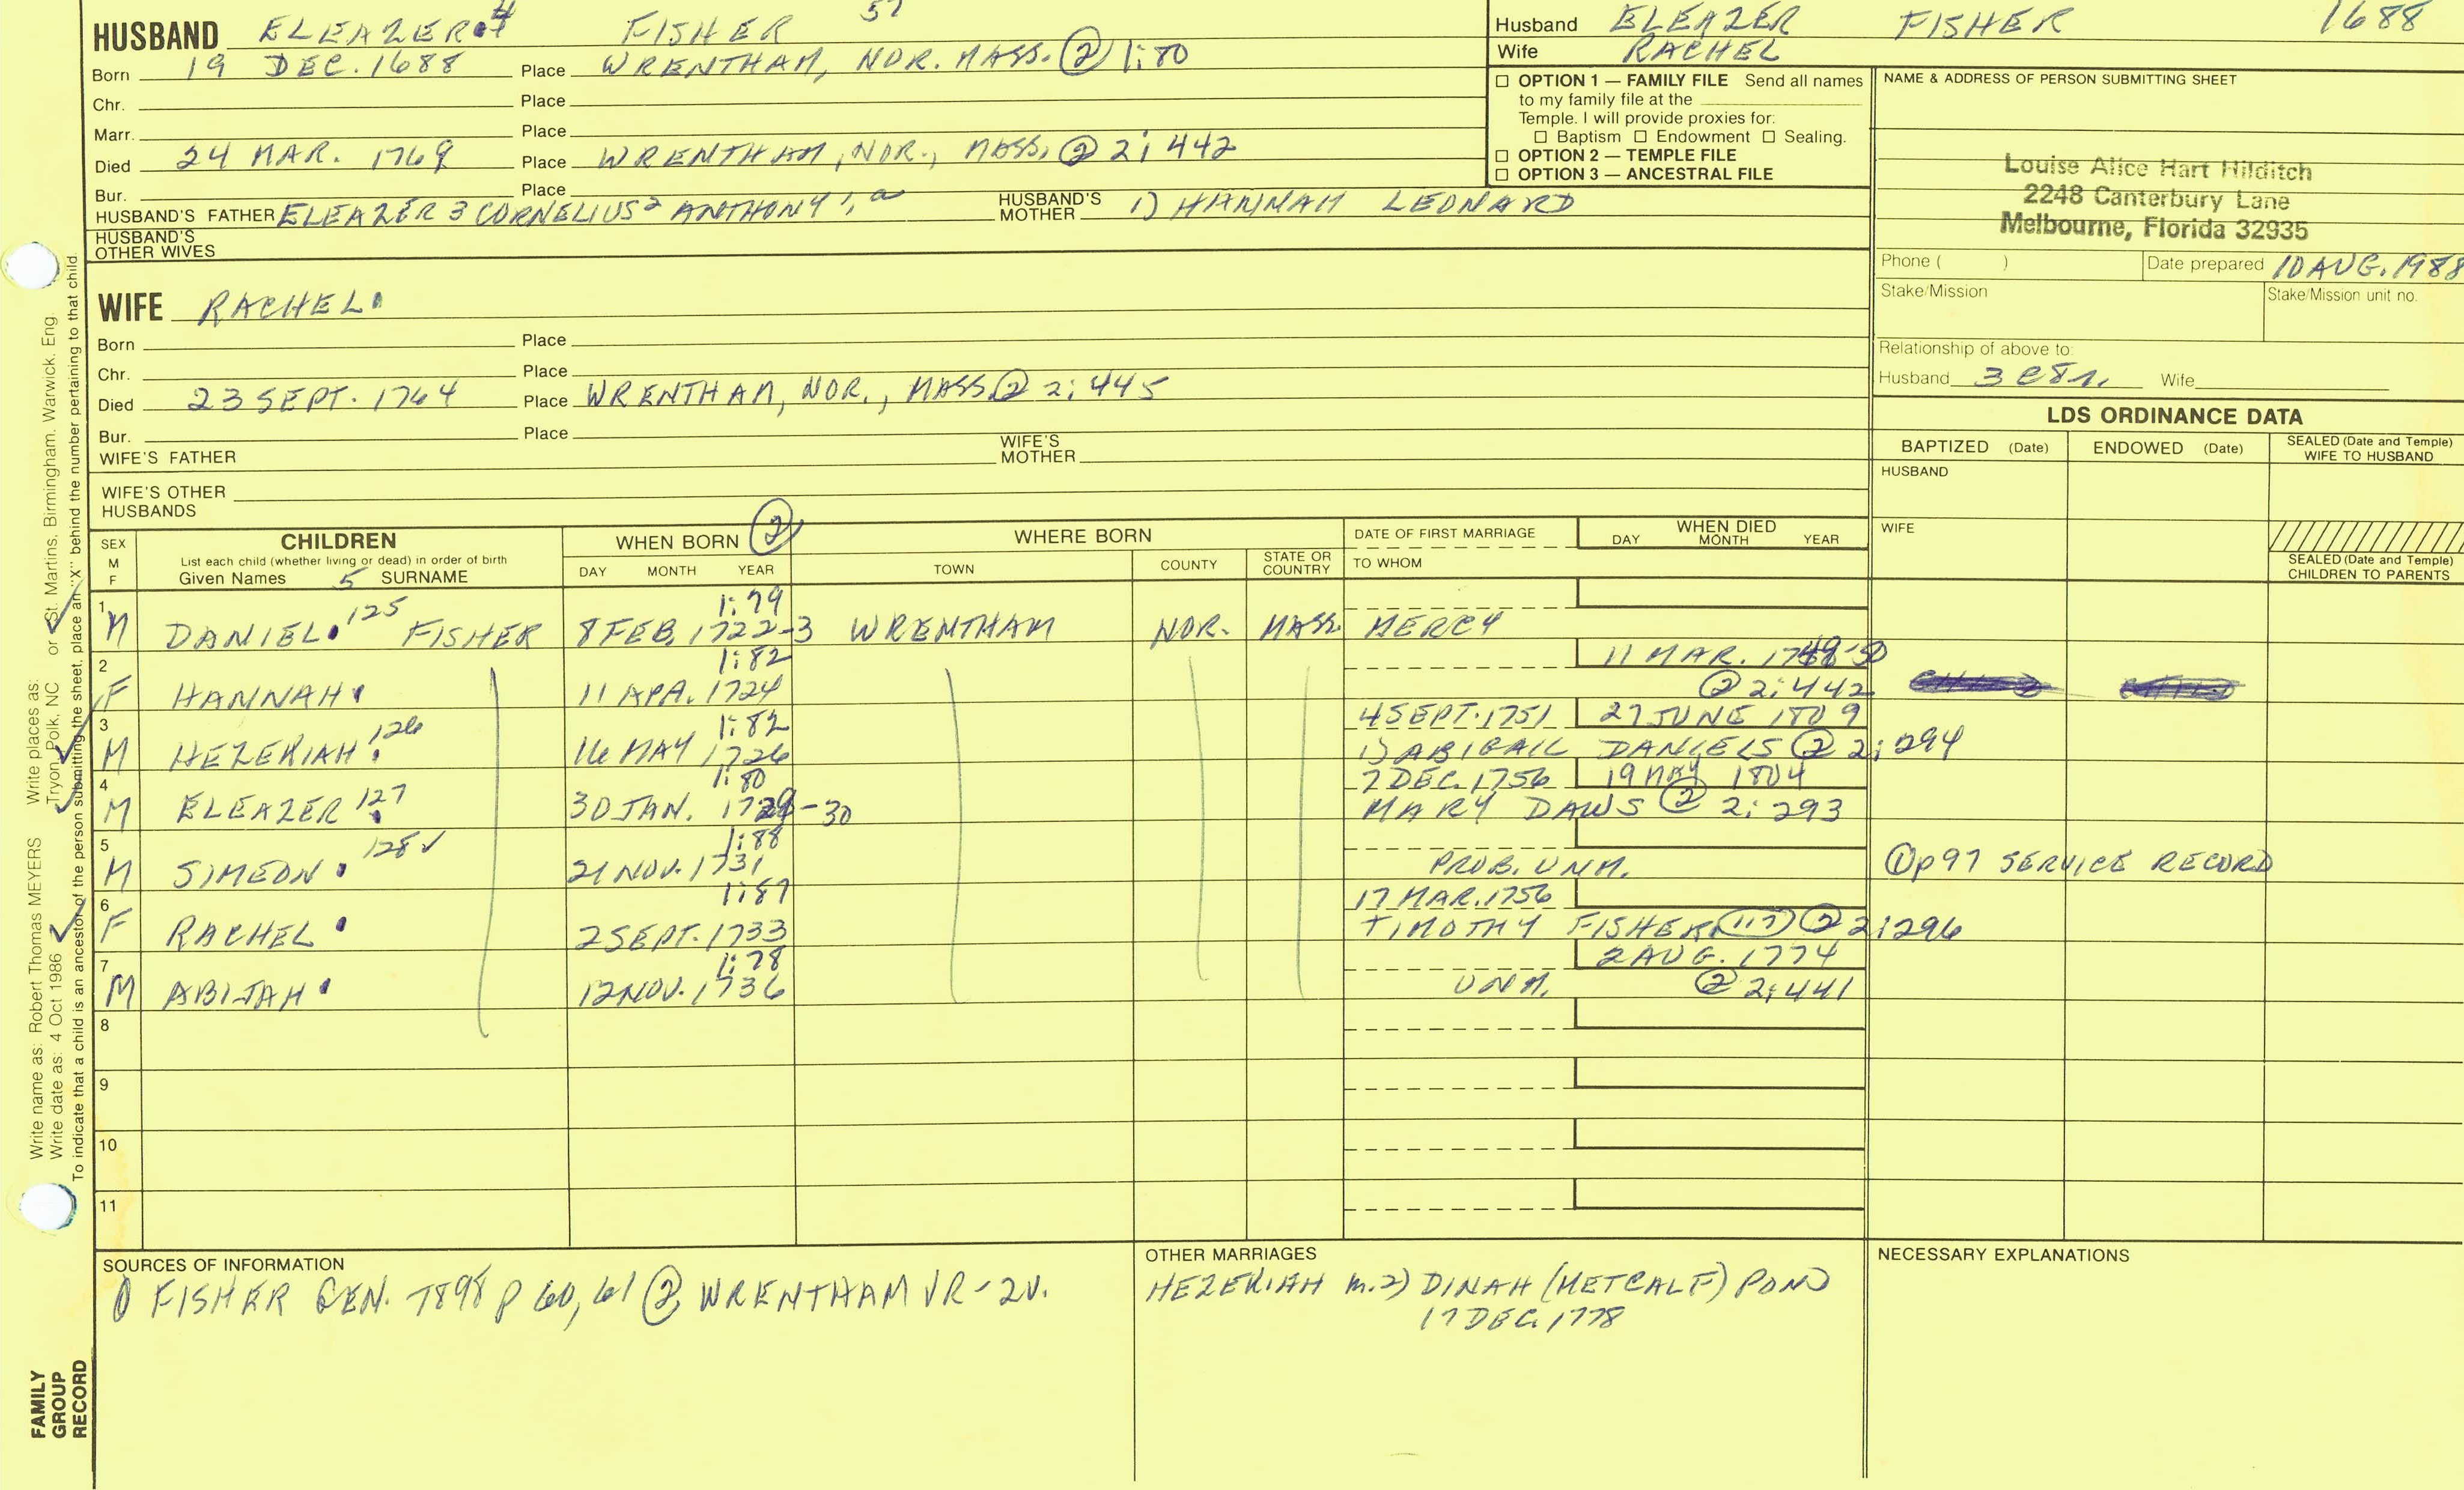 HUSBAND ELEAZER 4 FISHER 57
Born 19 DEC. 1688 Place WRENTHAM, NOR. MASS. ② 1:80
Chr. Place
Marr. Place
Died 24 MAR. 1769 Place WRENTHAM, NOR., MASS. ② 2:442
Bur. Place
HUSBAND'S FATHER ELEAZER 3 CORNELIUS 2 ANTHONY 1, a HUSBAND'S MOTHER 1) HANNAH LEONARD
HUSBAND'S OTHER WIVES
WIFE RACHEL
Born Place
Chr. Place
Died 23 SEPT. 1764 Place WRENTHAM, NOR., MASS ② 2:445
Bur. Place
WIFE'S FATHER WIFE'S MOTHER
WIFE'S OTHER HUSBANDS
Husband ELEAZER FISHER 1688
Wife RACHEL
☐ OPTION 1 — FAMILY FILE Send all names
to my family file at the
Temple. I will provide proxies for:
☐ Baptism ☐ Endowment ☐ Sealing.
☐ OPTION 2 — TEMPLE FILE
☐ OPTION 3 — ANCESTRAL FILE
NAME & ADDRESS OF PERSON SUBMITTING SHEET
Louise Alice Hart Hilditch
2248 Canterbury Lane
Melbourne, Florida 32935
Phone ( ) Date prepared 10 AUG. 1988
Stake/Mission Stake/Mission unit no.
Relationship of above to:
Husband 3 Wife
LDS ORDINANCE DATA
BAPTIZED (Date) ENDOWED (Date) SEALED (Date and Temple) WIFE TO HUSBAND
HUSBAND
WIFE
SEALED (Date and Temple)
CHILDREN TO PARENTS
SEX M F CHILDREN WHEN BORN ② WHERE BORN DATE OF FIRST MARRIAGE WHEN DIED
List each child (whether living or dead) in order of birth
Given Names 5 SURNAME DAY MONTH YEAR TOWN COUNTY STATE OR COUNTRY TO WHOM DAY MONTH YEAR
1 1:79
M DANIEL 125 FISHER 8 FEB. 1722-3 WRENTHAM NOR. MASS. MERCY
2 1:82 11 MAR. 1749-50
F HANNAH 11 APR. 1724 ② 2:442
3 1:82 4 SEPT. 1751 27 JUNE 1809
M HEZEKIAH 126 16 MAY 1726 1) ABIGAIL DANIELS ② 2:294
4 1:80 7 DEC. 1756 19 MAY 1804
M ELEAZER 127 30 JAN. 1729-30 MARY DAWS ② 2:293
5 1:88
M SIMEON 128 ✓ 21 NOV. 1731 PROB. UNM. ① p97 SERVICE RECORD
6 1:87 17 MAR. 1756
F RACHEL 2 SEPT. 1733 TIMOTHY FISHER (117) ② 2:296
7 1:78 2 AUG. 1774
M ABIJAH 12 NOV. 1736 UNM. ② 2:441
8
9
10
11
SOURCES OF INFORMATION
① FISHER GEN. 1898 p 60, 61 ② WRENTHAM VR-2V.
OTHER MARRIAGES
HEZEKIAH m. 2) DINAH (METCALF) POND
17 DEC. 1778
NECESSARY EXPLANATIONS
Write name as: Robert Thomas MEYERS Write places as: Tryon, Polk, NC or St. Martins, Birmingham, Warwick, Eng
Write date as: 4 Oct 1986
To indicate that a child is an ancestor of the person submitting the sheet, place an "X" behind the number pertaining to that child.
FAMILY
GROUP
RECORD